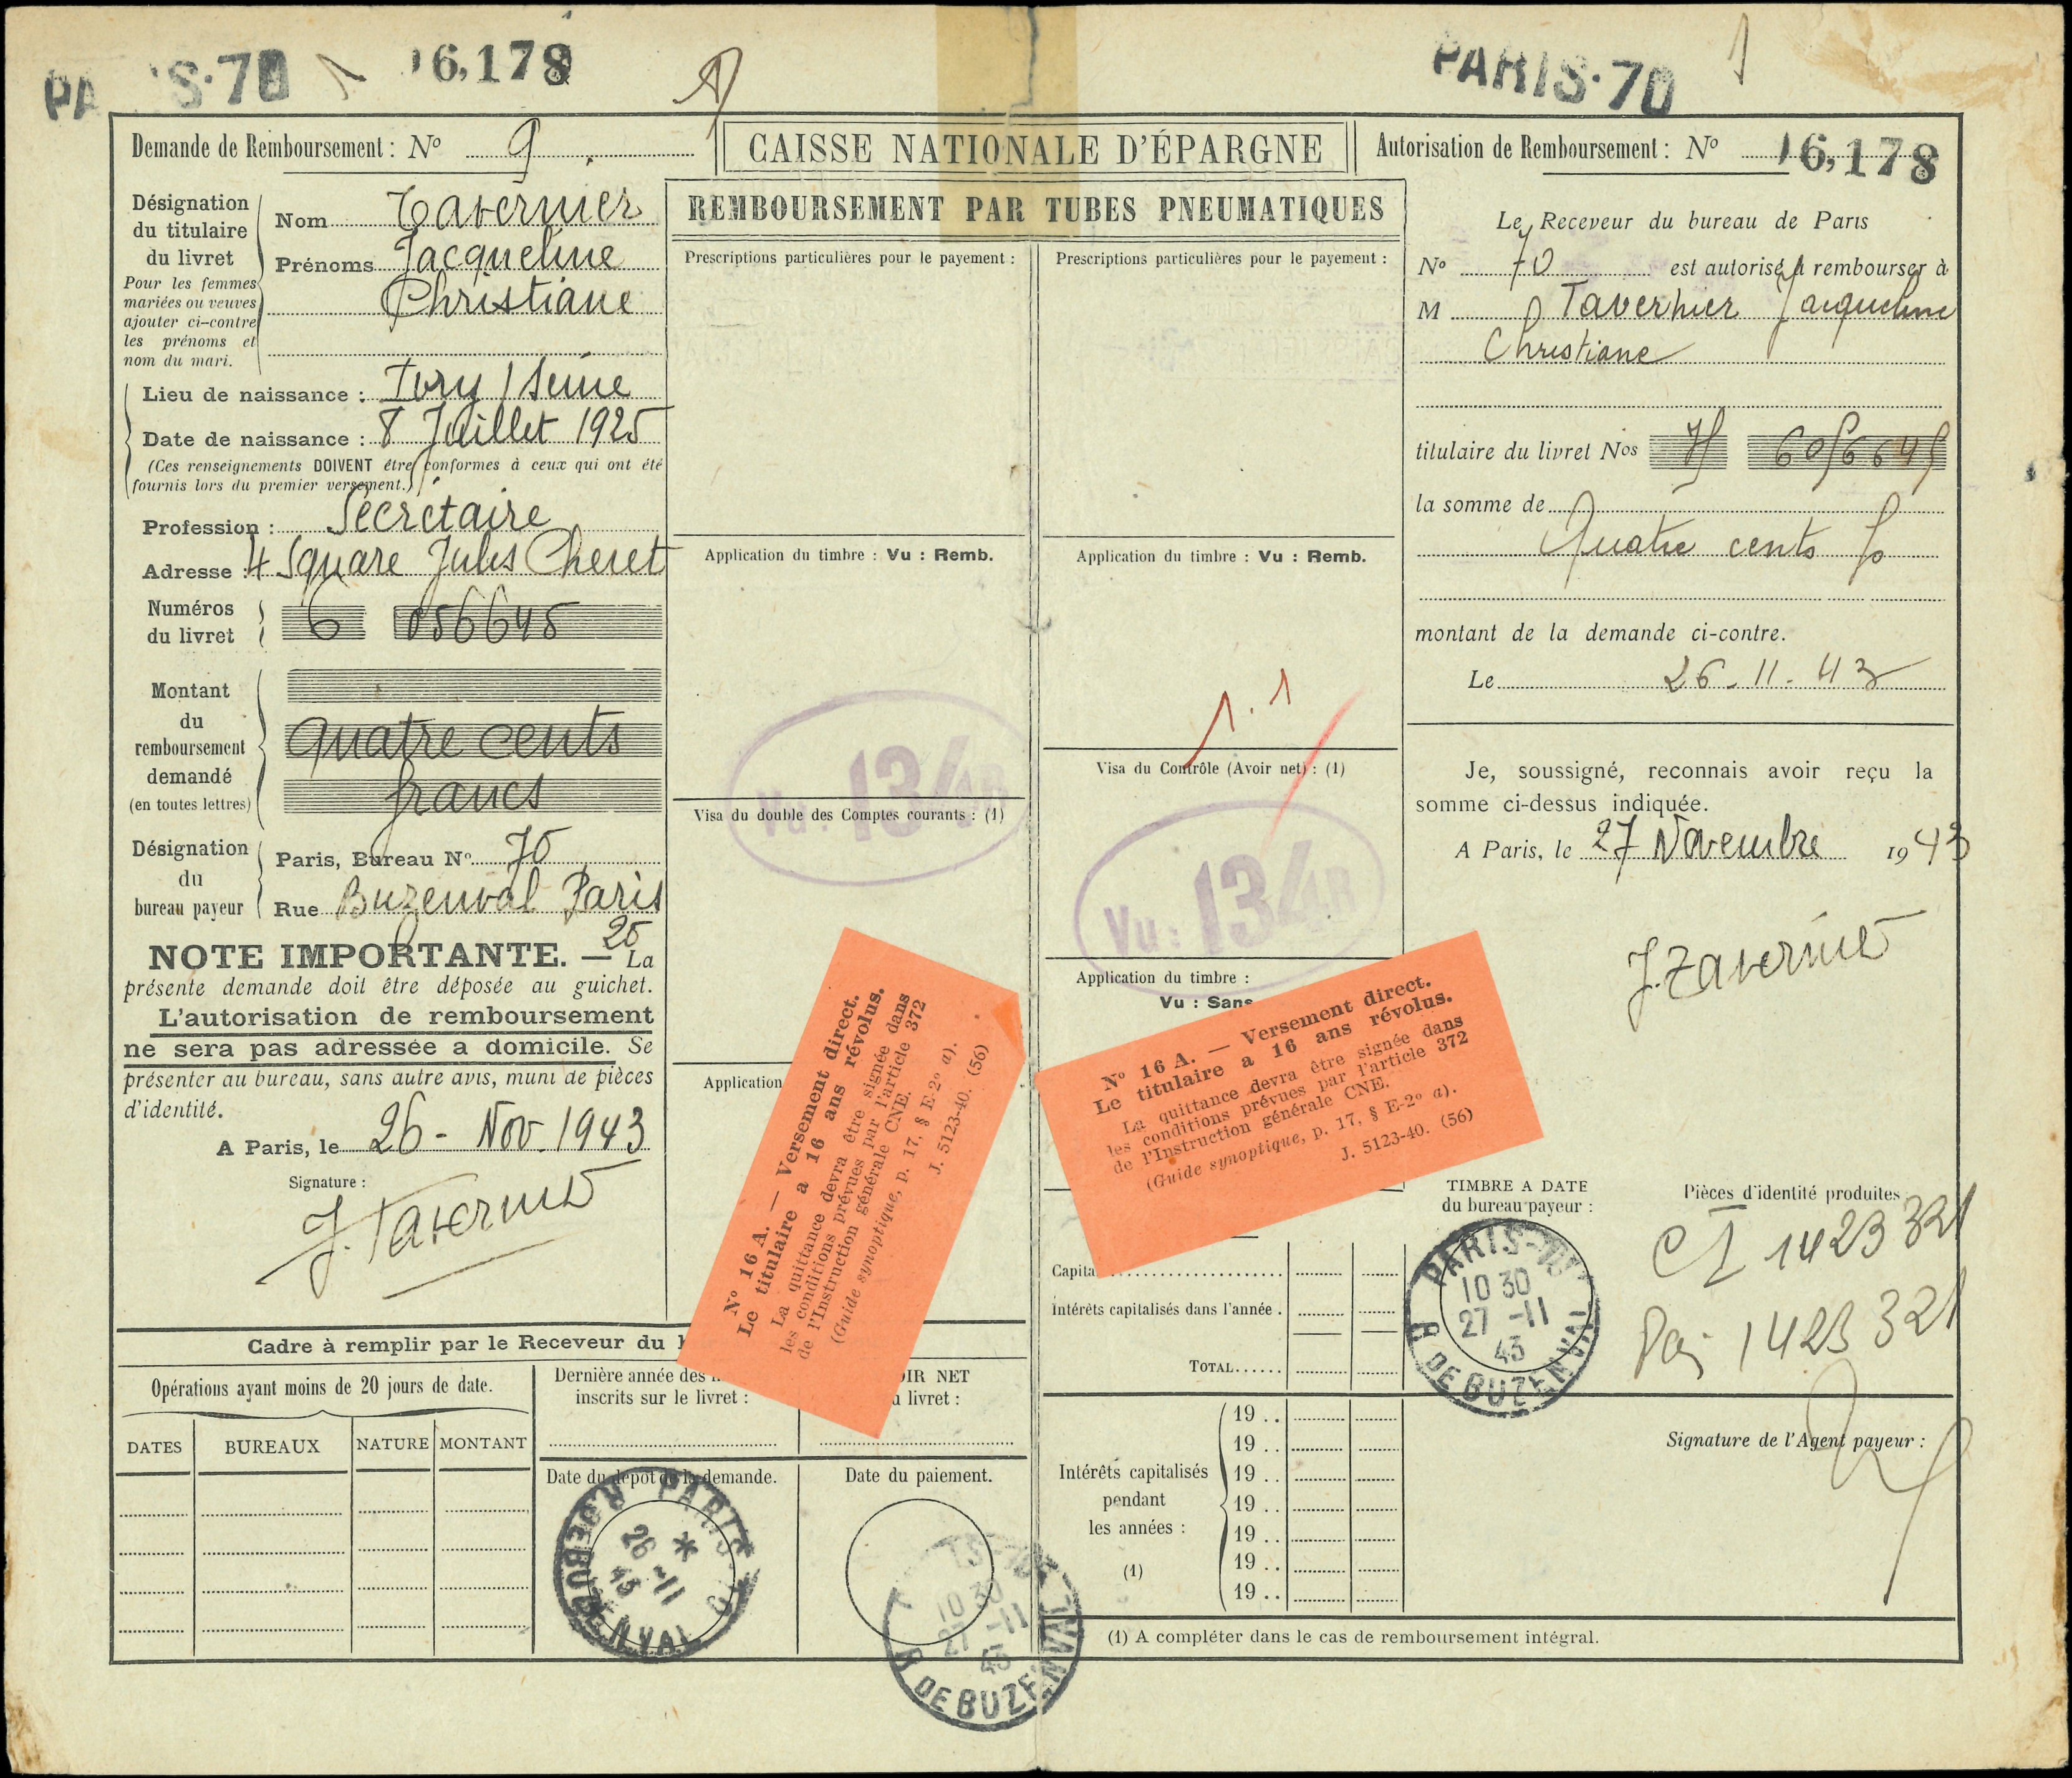 PARIS-70 1 16,178
PARIS·70 1
Demande de Remboursement : No 9
CAISSE NATIONALE D'ÉPARGNE
Autorisation de Remboursement : No 16,178
REMBOURSEMENT PAR TUBES PNEUMATIQUES
Désignation
du titulaire
du livret
Pour les femmes
mariées ou veuves
ajouter ci-contre
les prénoms et
nom du mari.
Nom Tavernier
Prénoms Jacqueline
Christiane
Lieu de naissance : Ivry / Seine
Date de naissance : 8 Juillet 1925
(Ces renseignements DOIVENT être conformes à ceux qui ont été
fournis lors du premier versement.)
Profession : Secrétaire
Adresse : 4 Square Jules Cheret
Numéros
du livret
6 056645
Montant
du
remboursement
demandé
(en toutes lettres)
Quatre cents
francs
Désignation
du
bureau payeur
Paris, Bureau No 70
Rue Buzenval Paris
20
NOTE IMPORTANTE. — La
présente demande doit être déposée au guichet.
L'autorisation de remboursement
ne sera pas adressée a domicile. Se
présenter au bureau, sans autre avis, muni de pièces
d'identité.
A Paris, le 26 - Nov. 1943
Signature :
J. Tavernier
Cadre à remplir par le Receveur du
Opérations ayant moins de 20 jours de date.
DATES BUREAUX NATURE MONTANT
Dernière année des
inscrits sur le livret :
OIR NET
livret :
Date du dépôt de la demande.
PARIS-70 * R. DE BUZENVAL
26 -11
43
Date du paiement.
10 30
27 -11
43
R DE BUZENVAL
Prescriptions particulières pour le payement :
Application du timbre : Vu : Remb.
Vu : 134 B
Visa du double des Comptes courants : (1)
Application
No 16 A. — Versement direct.
Le titulaire a 16 ans révolus.
La quittance devra être signée dans
les conditions prévues par l'article 372
de l'Instruction générale CNE.
(Guide synoptique, p. 17, § E-2o a).
J. 5123-40. (56)
Prescriptions particulières pour le payement :
Application du timbre : Vu : Remb.
1.1
Visa du Contrôle (Avoir net) : (1)
Vu : 134 B
Application du timbre :
Vu : Sans
No 16 A. — Versement direct.
Le titulaire a 16 ans révolus.
La quittance devra être signée dans
les conditions prévues par l'article 372
de l'Instruction générale CNE.
(Guide synoptique, p. 17, § E-2o a).
J. 5123-40. (56)
Capita
Intérêts capitalisés dans l'année .
TOTAL......
Intérêts capitalisés
pendant
les années :
(1)
19 ..
19 ..
19 ..
19 ..
19 ..
19 ..
19 ..
(1) A compléter dans le cas de remboursement intégral.
Le Receveur du bureau de Paris
No 70 est autorisé à rembourser à
M Tavernier Jacqueline
Christiane
titulaire du livret Nos 75 6056645
la somme de
Quatre cents f
montant de la demande ci-contre.
Le 26-11-43
Je, soussigné, reconnais avoir reçu la
somme ci-dessus indiquée.
A Paris, le 27 Novembre 1943
J. Tavernier
TIMBRE A DATE
du bureau payeur :
PARIS-70
10 30
27 -11
43
R DE BUZENVAL
Pièces d'identité produites
CI 1423321
1423321
Signature de l'Agent payeur :